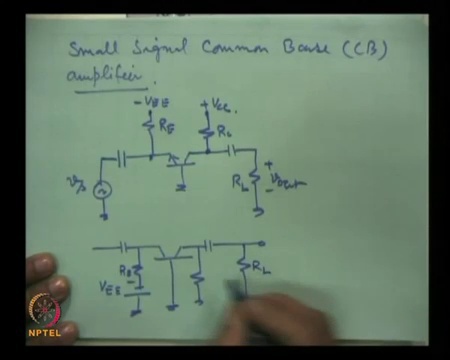 Small Signal Common Base (CB)
amplifier.
-VEE
+VCC
RE
RL
vs
RL
+
vout
-
RE
-
VEE
RL
NPTEL